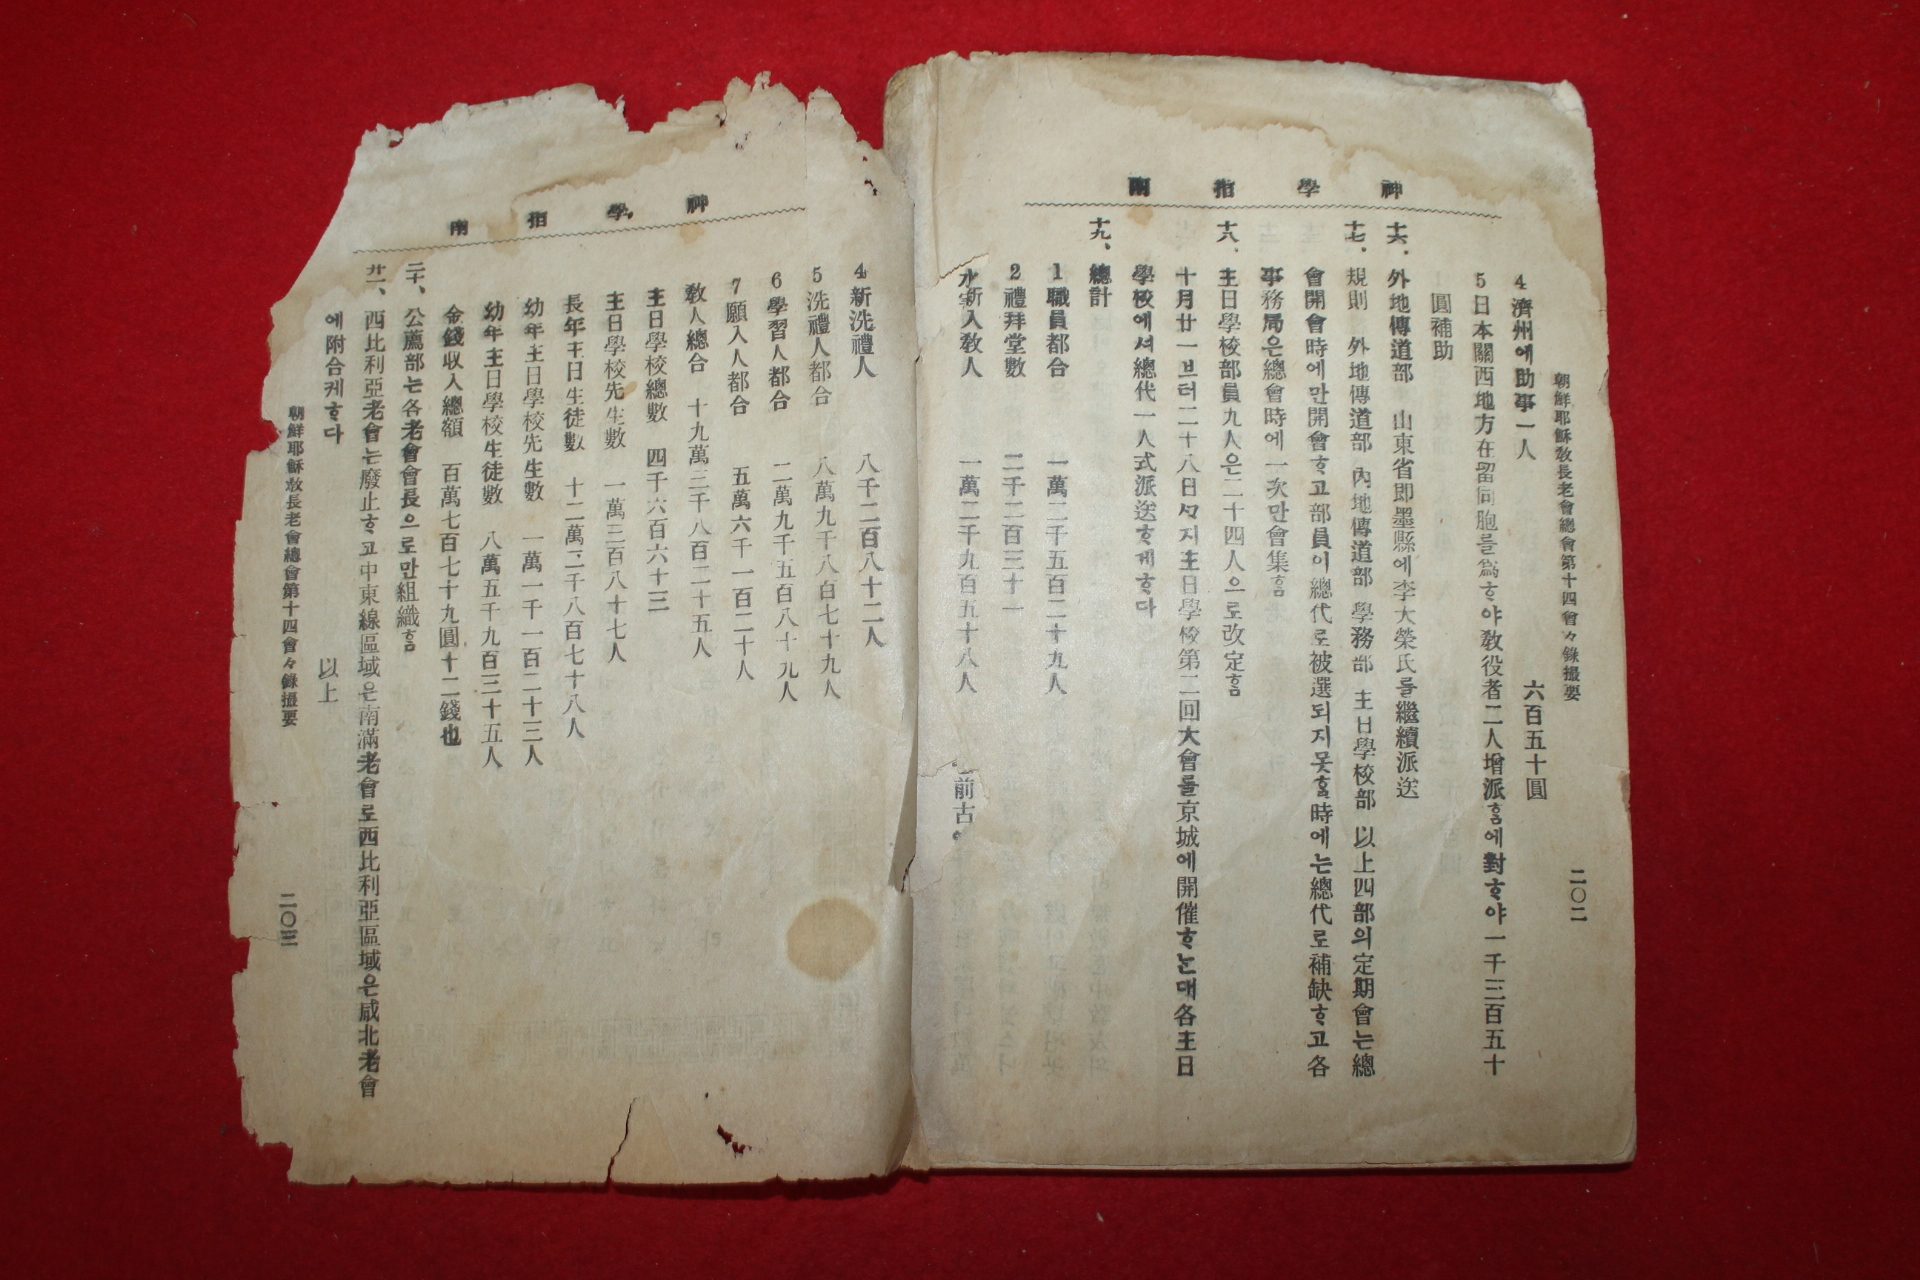 神學指南
朝鮮耶穌敎長老會總會第十四會々錄撮要
二〇二
4 濟州에助事一人 六百五十圓
5 日本關西地方在留同胞를爲ᄒᆞ야敎役者二人增派ᄒᆞᆷ에對ᄒᆞ야一千三百五十
圓補助
十六、外地傳道部 山東省即墨縣에李大榮氏를繼續派送
十七、規則 外地傳道部 內地傳道部 學務部 主日學校部 以上四部의定期會는總
會開會時에만開會ᄒᆞ고部員이總代로被選되지못ᄒᆞᆯ時에는總代로補缺ᄒᆞ고各
事務局은總會時에一次만會集ᄒᆞᆷ
十八、主日學校部員九人은二十四人으로改定ᄒᆞᆷ
十月廿一브터二十八日ᄭᆞ지主日學校第二回大會를京城에開催ᄒᆞ는대各主日
學校에셔總代一人式派送ᄒᆞ게ᄒᆞ다
十九、總計
1 職員都合 一萬二千五百二十九人
2 禮拜堂數 二千二百三十一
新入敎人 一萬二千九百五十八人
前古
神學指南
4 新洗禮人 八千二百八十二人
5 洗禮人都合 八萬九千八百七十九人
6 學習人都合 二萬九千五百八十九人
7 願入人都合 五萬六千一百二十人
敎人總合 十九萬三千八百二十五人
主日學校總數 四千六百六十三
主日學校先生數 一萬三百八十七人
長年主日生徒數 十二萬三千八百七十八人
幼年主日學校先生數 一萬一千一百二十三人
幼年主日學校生徒數 八萬五千九百三十五人
金錢收入總額 百萬七百七十九圓十二錢也
二十、公薦部는各老會會長으로만組織ᄒᆞᆷ
廿一、西比利亞老會는廢止ᄒᆞ고中東線區域은南滿老會로西比利亞區域은咸北老會
에附合케ᄒᆞ다
以上
朝鮮耶穌敎長老會總會第十四會々錄撮要
二〇三